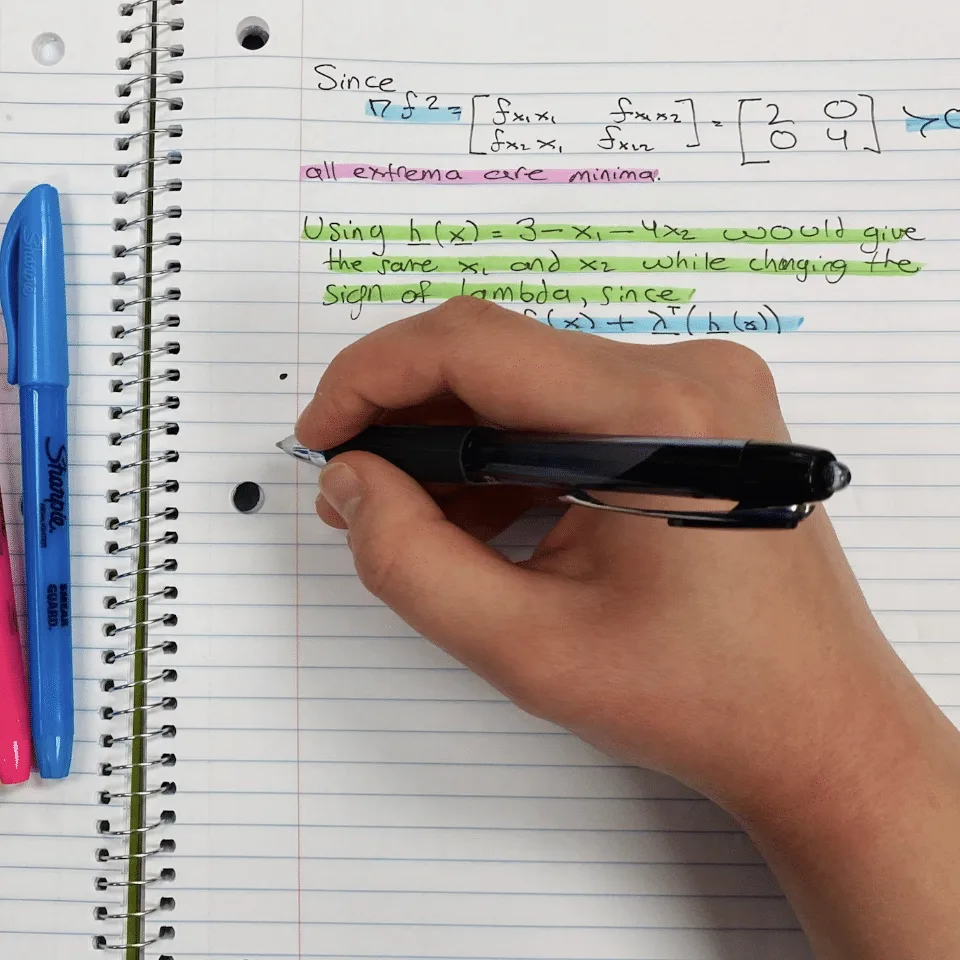 Since
∇f2 = [ fx₁x₁ fx₁x₂ ] = [ 2 0 ] ≻0
[ fx₂x₁ fx₂₂ ] [ 0 4 ]
all extrema are minima.
Using h(x) = 3 - x₁ - 4x₂ would give
the same x₁ and x₂ while changing the
sign of lambda, since
f(x) + λᵀ(h(x))
Sharpie
Sharpie.
SMEAR
GUARD.